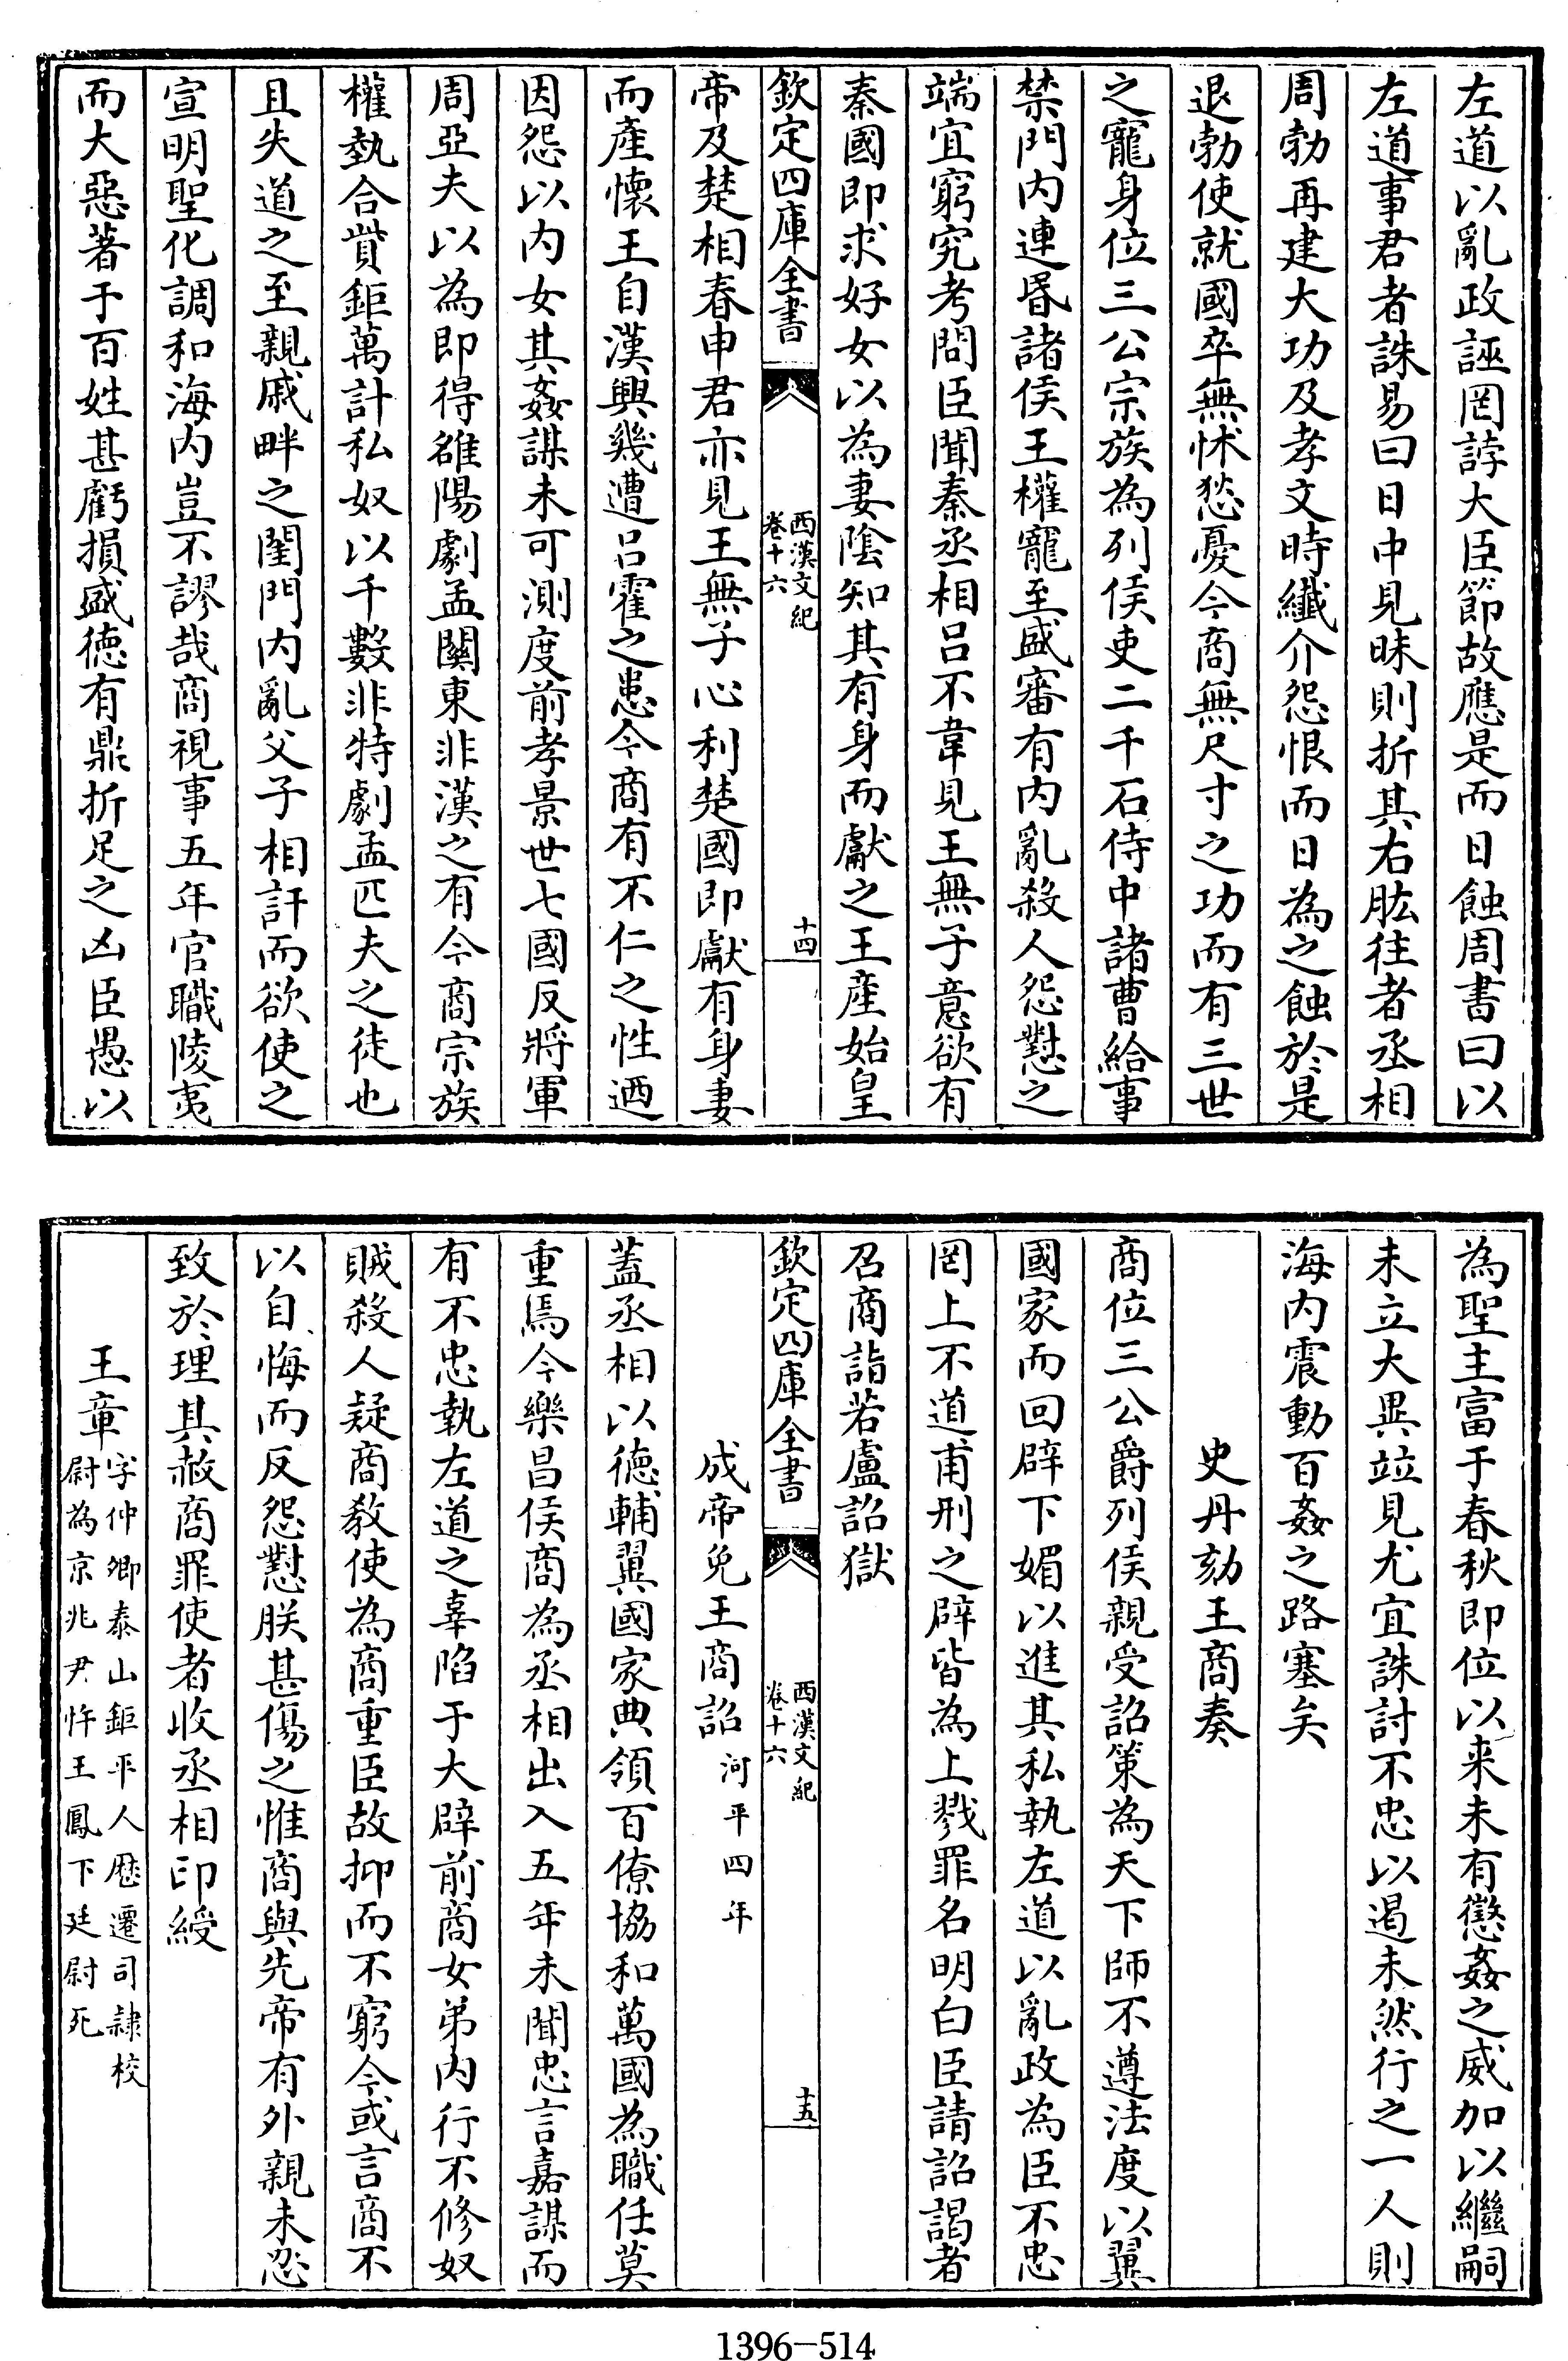 左道以亂政誣罔誖大臣節故應是而日蝕周書曰以
左道事君者誅易曰日中見昧則折其右肱往者丞相
周勃再建大功及孝文時纖介怨恨而日為之蝕於是
退勃使就國卒無怵愁憂今商無尺寸之功而有三世
之寵身位三公宗族為列侯吏二千石侍中諸曹給事
禁門内連昬諸侯王權寵至盛審有内亂殺人怨懟之
端宜窮究考問臣聞秦丞相吕不韋見王無子意欲有
秦國即求好女以為妻隂知其有身而獻之王産始皇
欽定四庫全書
西漢文紀
卷十六
十四
帝及楚相春申君亦見王無子心利楚國即獻有身妻
而産懷王自漢興幾遭吕霍之患今商有不仁之性廼
因怨以内女其姦謀未可測度前孝景世七國反將軍
周亞夫以為即得雒陽劇孟闗東非漢之有今商宗族
權埶合貲鉅萬計私奴以千數非特劇孟匹夫之徒也
且失道之至親戚畔之閨門内亂父子相訐而欲使之
宣明聖化調和海内豈不謬哉商視事五年官職陵夷
而大惡著于百姓甚虧損盛徳有鼎折足之凶臣愚以
為聖主富于春秋即位以来未有懲姦之威加以繼嗣
未立大異竝見尤宜誅討不忠以遏未然行之一人則
海内震動百姦之路塞矣
史丹劾王商奏
商位三公爵列侯親受詔策為天下師不遵法度以翼
國家而回辟下媚以進其私執左道以亂政為臣不忠
罔上不道甫刑之辟皆為上戮罪名明白臣請詔謁者
召商詣若盧詔獄
欽定四庫全書
西漢文紀
卷十六
十五
成帝免王商詔河平四年
蓋丞相以徳輔翼國家典領百僚協和萬國為職任莫
重焉今樂昌侯商為丞相出入五年未聞忠言嘉謀而
有不忠執左道之辜陷于大辟前商女弟内行不修奴
賊殺人疑商教使為商重臣故抑而不窮今或言商不
以自悔而反怨懟朕甚傷之惟商與先帝有外親未忍
致於理其赦商罪使者收丞相印綬
王章字仲卿泰山鉅平人歴遷司隷校
尉為京兆尹忤王鳳下廷尉死
1396-514